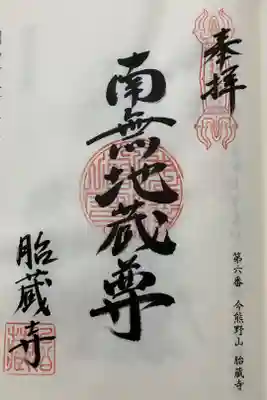 奉拝
第六番 今熊野山 胎蔵寺
南無地蔵尊
胎蔵寺